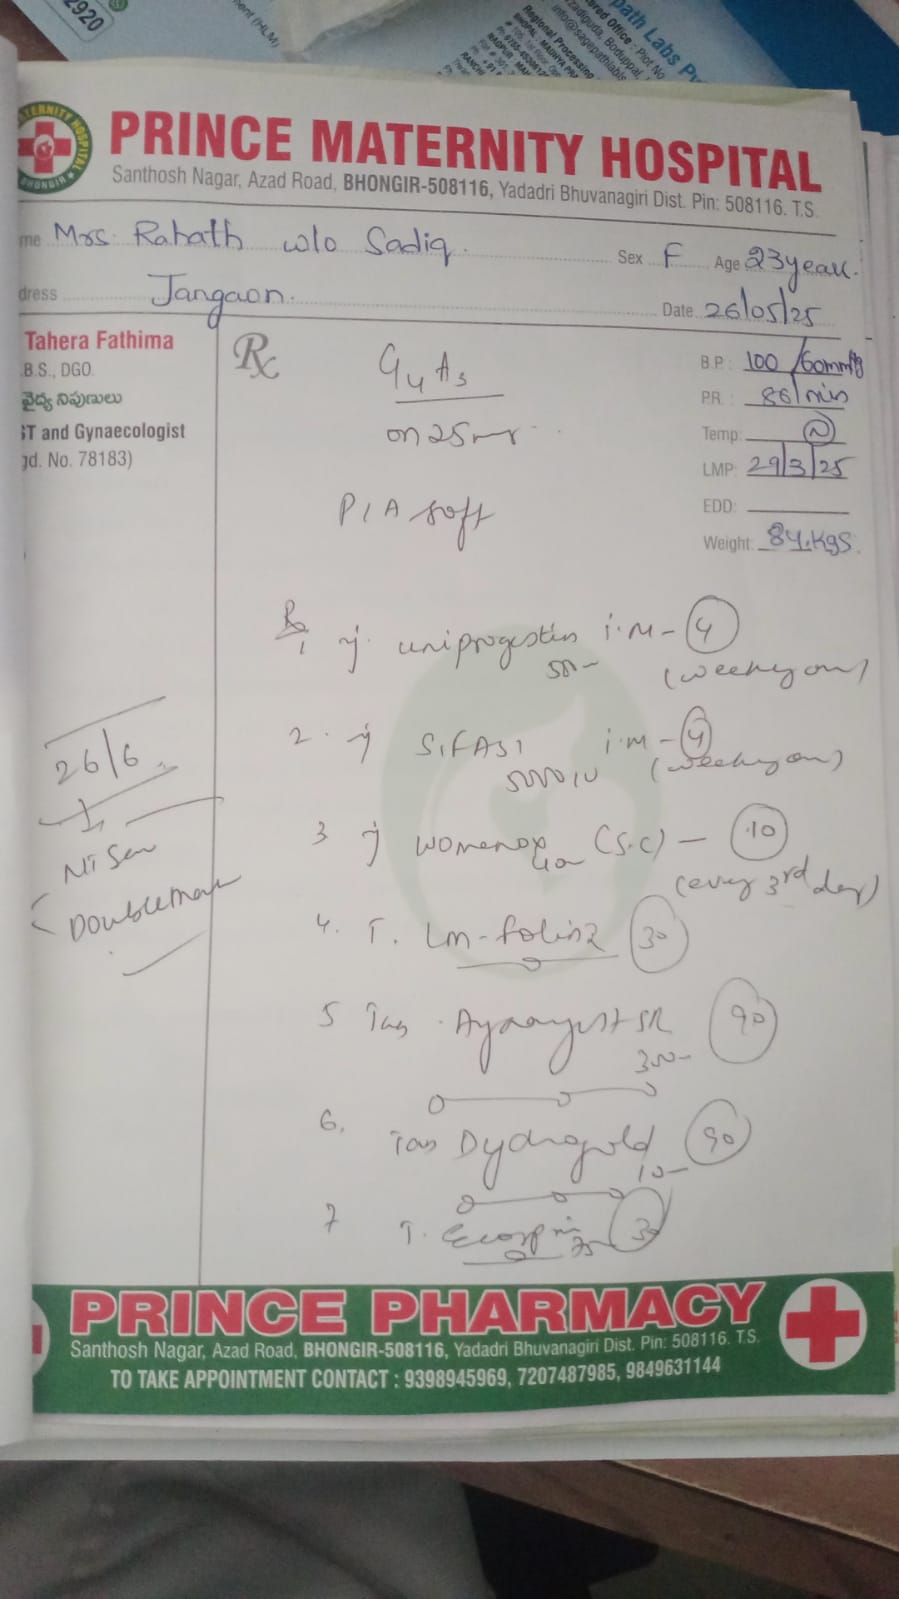 2920
ment (HLM)
path Labs Pv
PRINCE MATERNITY HOSPITAL
Santhosh Nagar, Azad Road, BHONGIR-508116, Yadadri Bhuvanagiri Dist. Pin: 508116. T.S.
me Mrs. Rahath w/o Sadiq. Sex F Age 23 years.
dress Jangaon. Date 26/05/25
Tahera Fathima
.B.S., DGO.
వైద్య నిపుణులు
ST and Gynaecologist
gd. No. 78183)
Rx
G4 A3
on 25mr
P/A soft
B.P.: 100/60mmHg
PR.: 86/min
Temp: N
LMP: 29/3/25
EDD:
Weight: 84.Kgs.
Rx
1 Inj. uniprogestin i.m - 4
500 (weekly on)
2. Inj SIFASI i.m - 4
5000 IU (weekly on)
3 Inj womenox (S.C) - 10
40 (every 3rd day)
4. T. Lm-folin2 30
5 Tab. SR 90
300
6. Tab Dydrogold 90
10
7 T. Ecosprin 30
26/6
NT Scan
Doublemar
PRINCE PHARMACY
Santhosh Nagar, Azad Road, BHONGIR-508116, Yadadri Bhuvanagiri Dist. Pin: 508116. T.S.
TO TAKE APPOINTMENT CONTACT : 9398945969, 7207487985, 9849631144